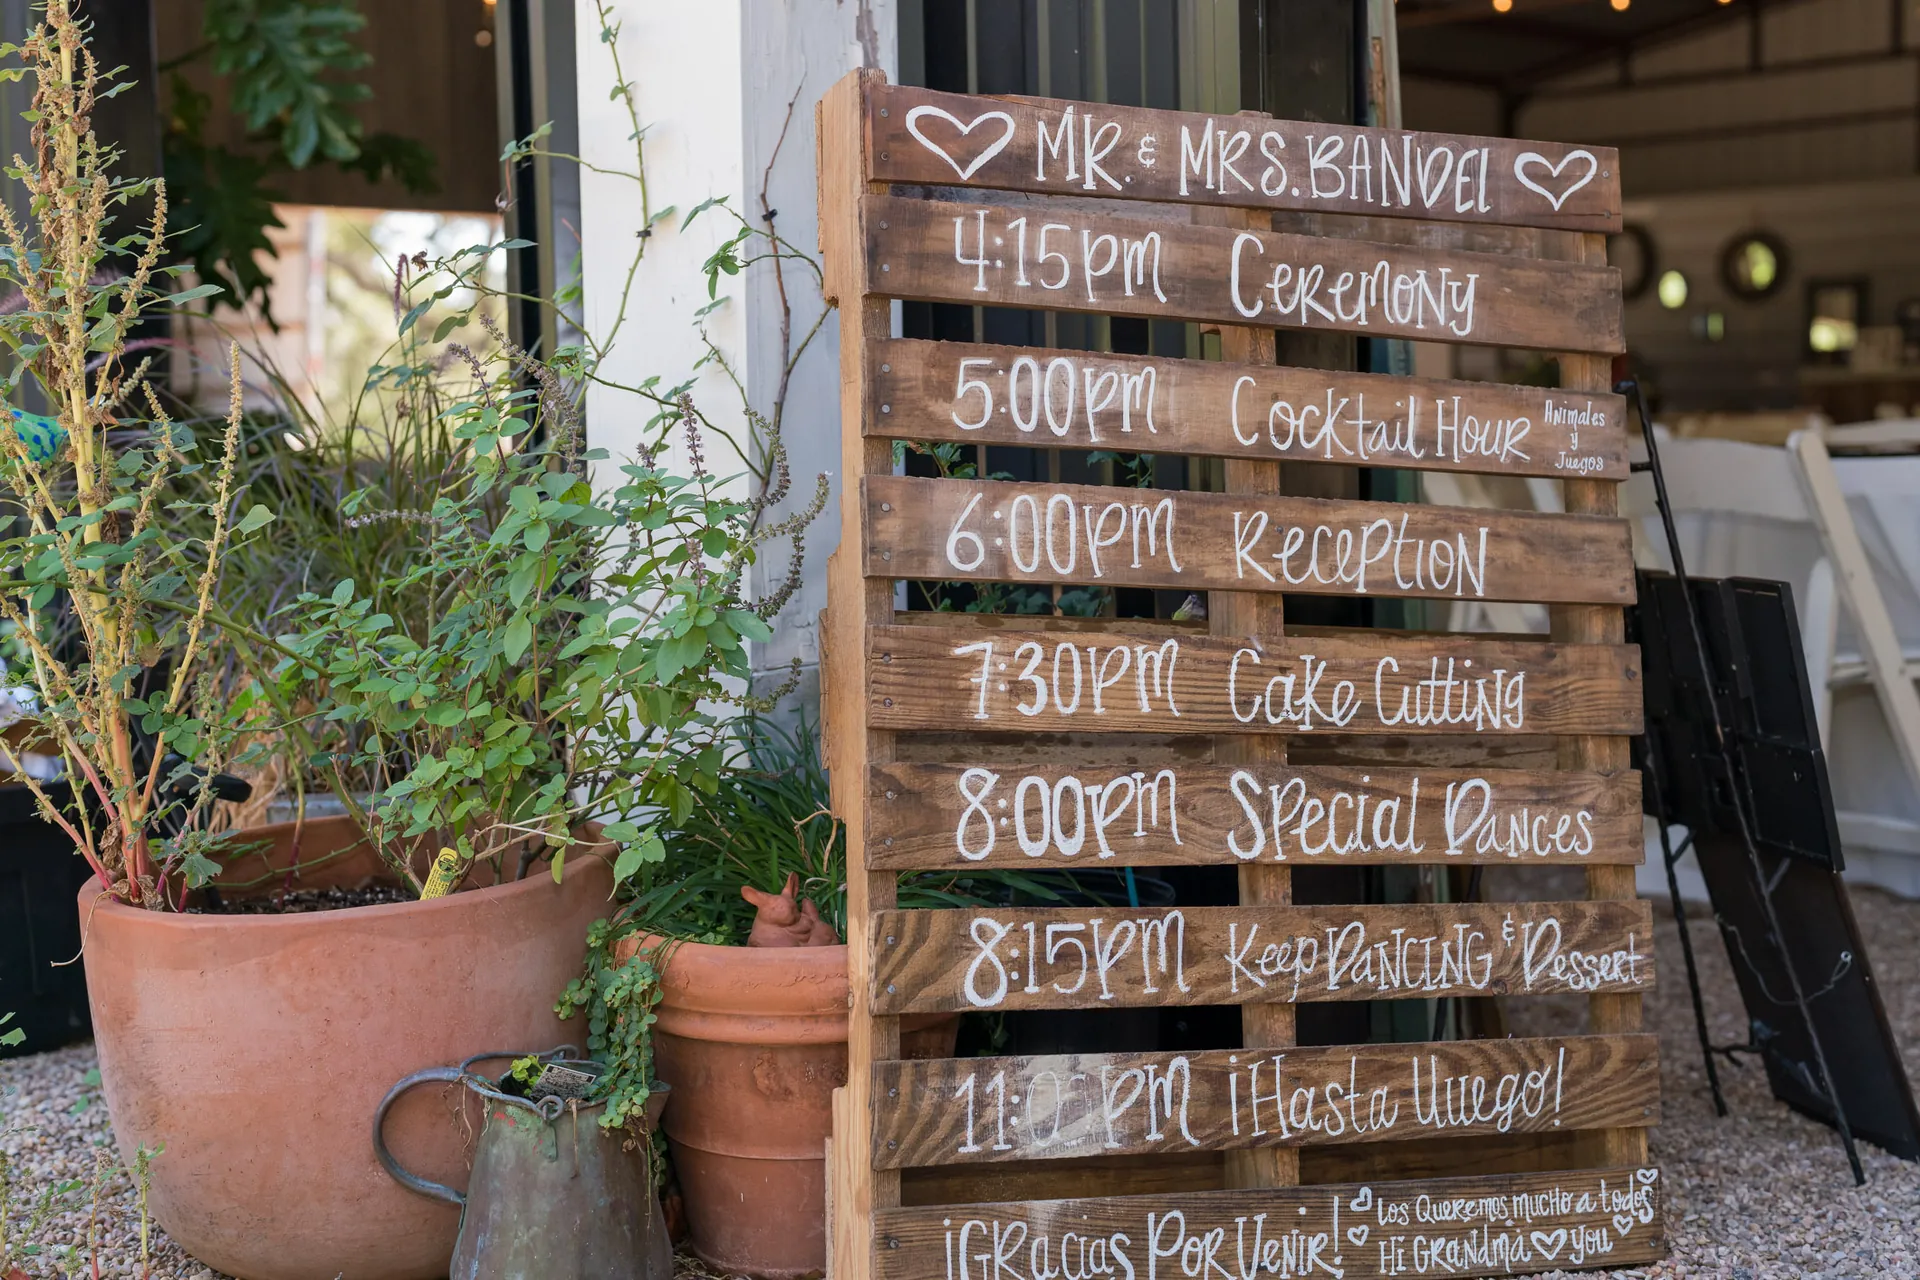 MR. & MRS. BANDEL
4:15PM CEREMONY
5:00PM Cocktail Hour
Animales
y
Juegos
6:00PM Reception
7:30PM Cake Cutting
8:00PM Special Dances
8:15PM Keep DANCING & Dessert
11:00PM ¡Hasta luuego!
¡GRacias PoR VeNiR!
Los Queremos mucho a todos
Hi GRaNdma you